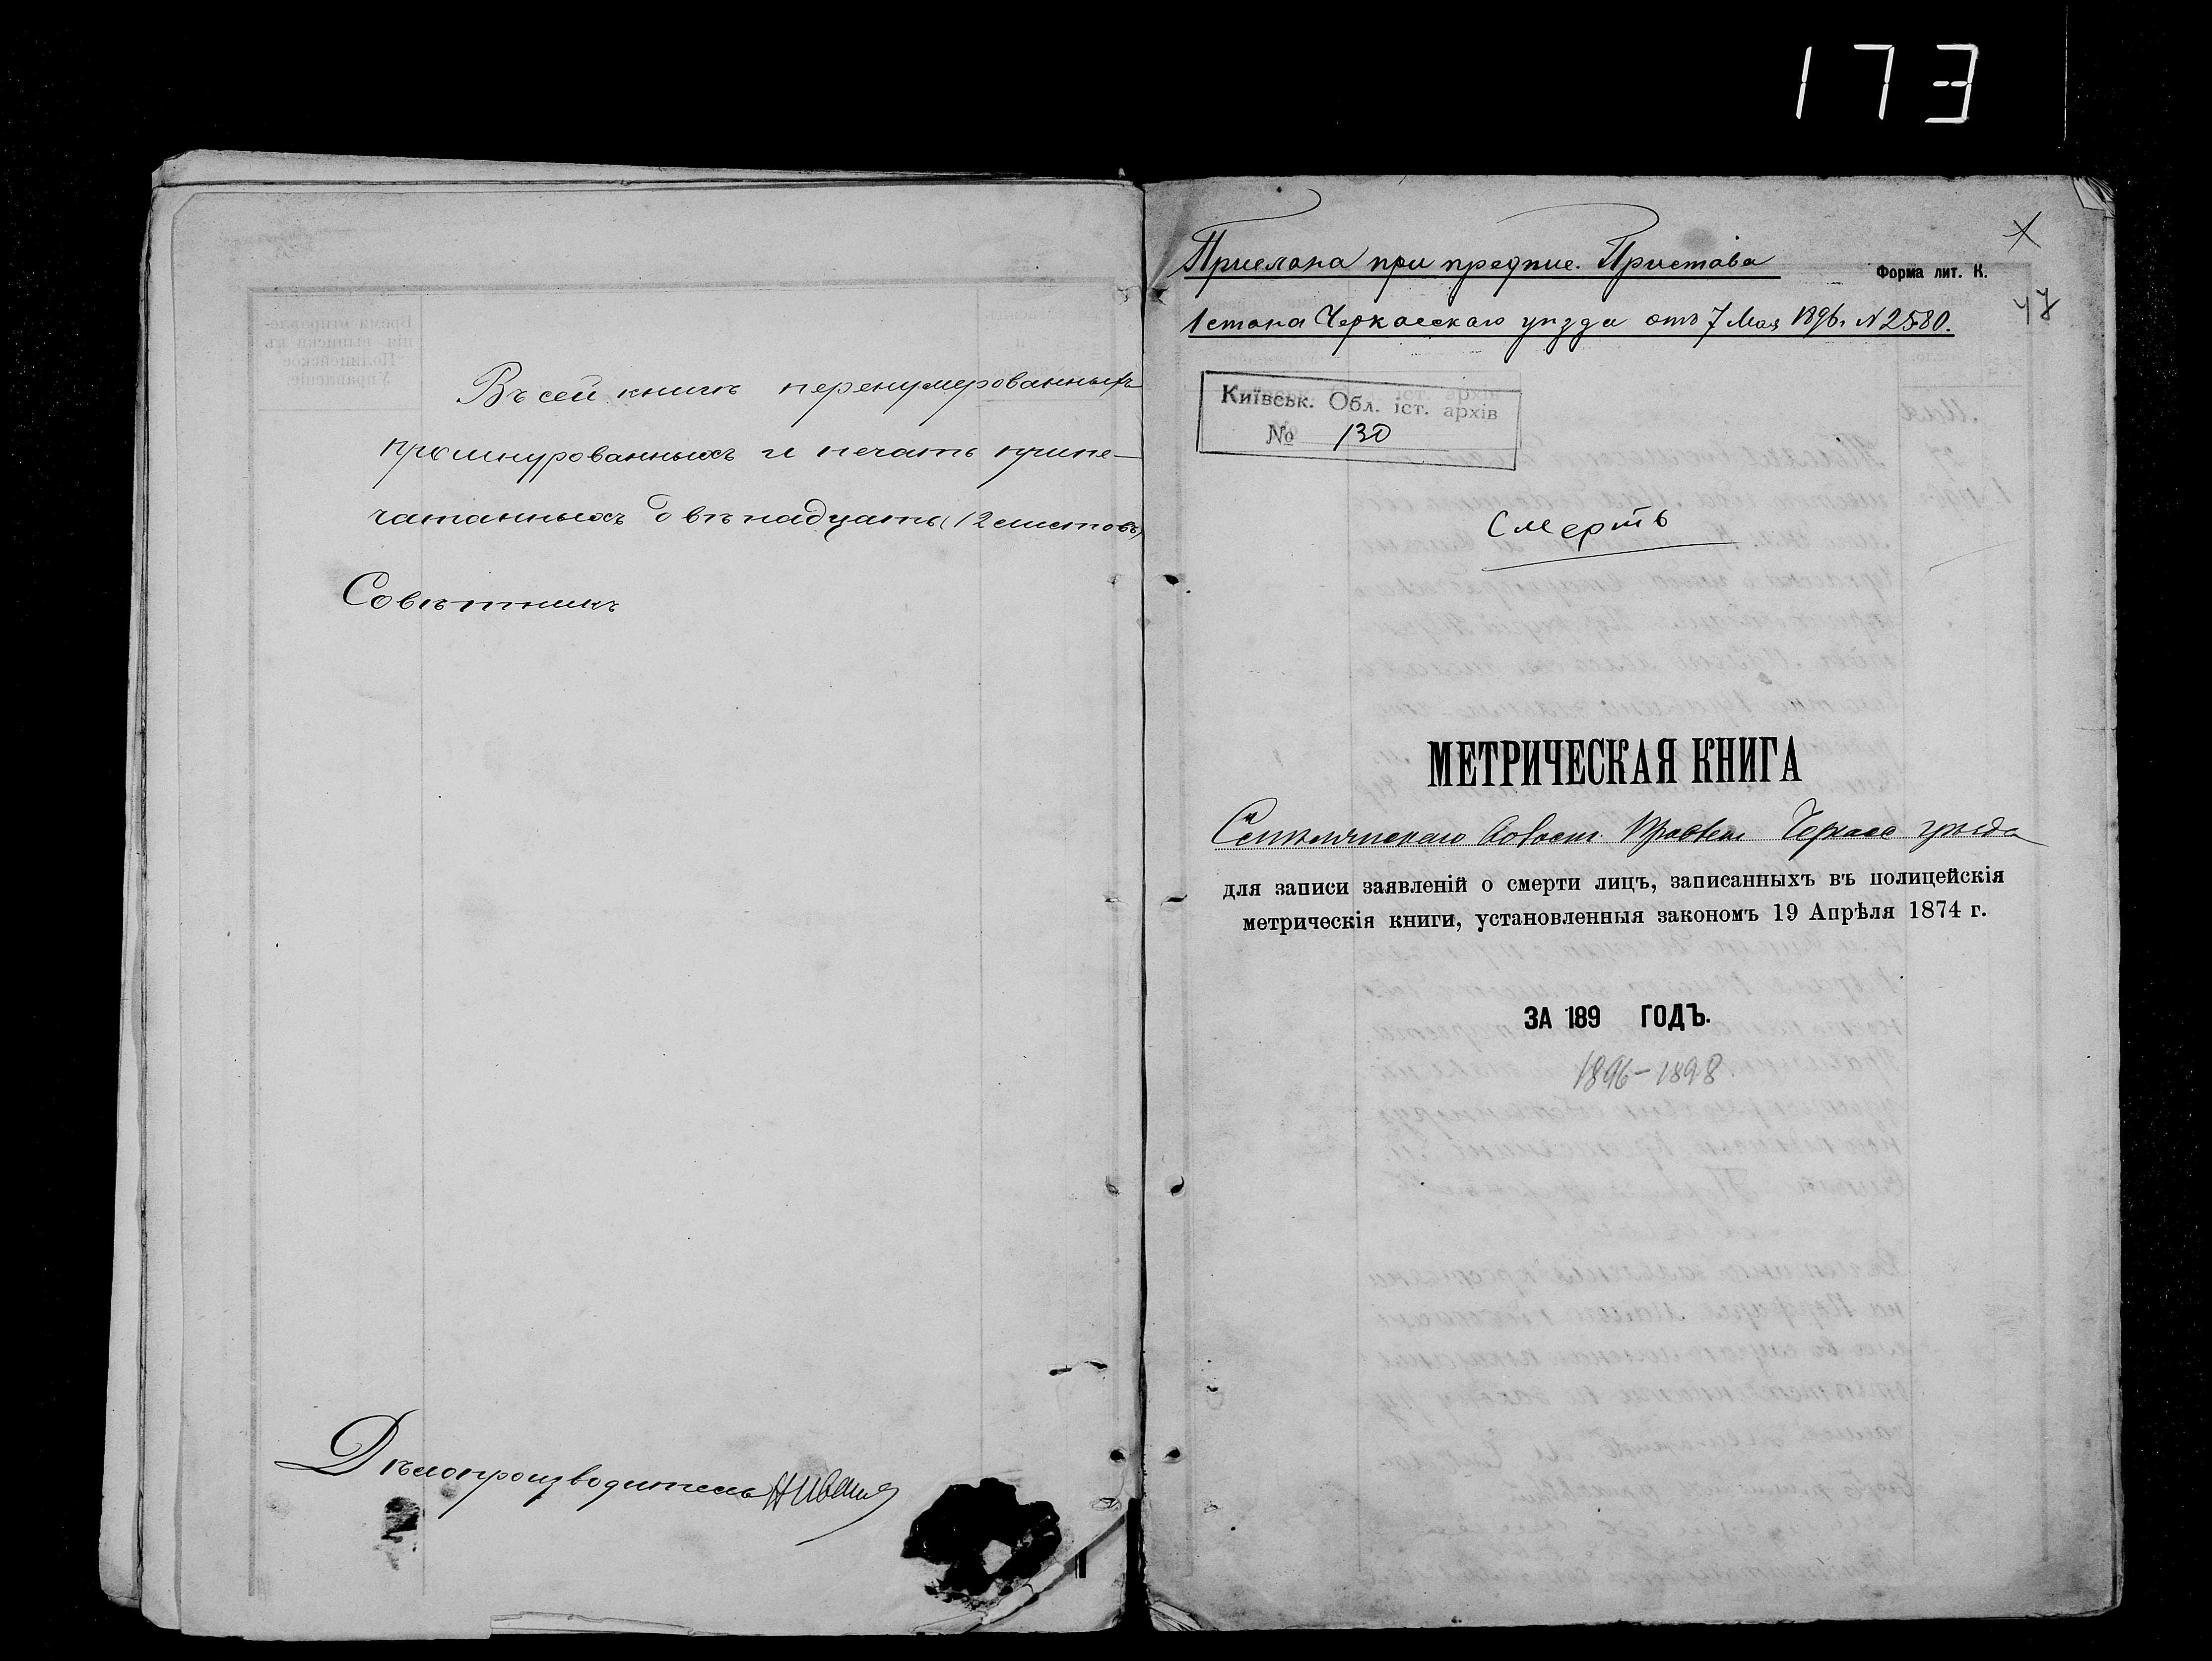 173
Въ сей книгѣ перенумерованныхъ
прошнурованныхъ и печать припе-
чатанныхъ двѣнадцать (12 листовъ)
Совѣтникъ
Дѣлопроизводитель
Прислана при предпис. Пристава
1 стана Черкасскаго уѣзда отъ 7 Мая 1896 г. N 2580.
Форма лит. К.
Київськ. Обл. іст. архів
№ 130
Смерть
МЕТРИЧЕСКАЯ КНИГА
Смѣлянскаго Волост. Правлен Черкасс уѣзда
для записи заявленій о смерти лицъ, записанныхъ въ полицейскія
метрическія книги, установленныя закономъ 19 Апрѣля 1874 г.
ЗА 189 ГОДЪ.
1896-1898